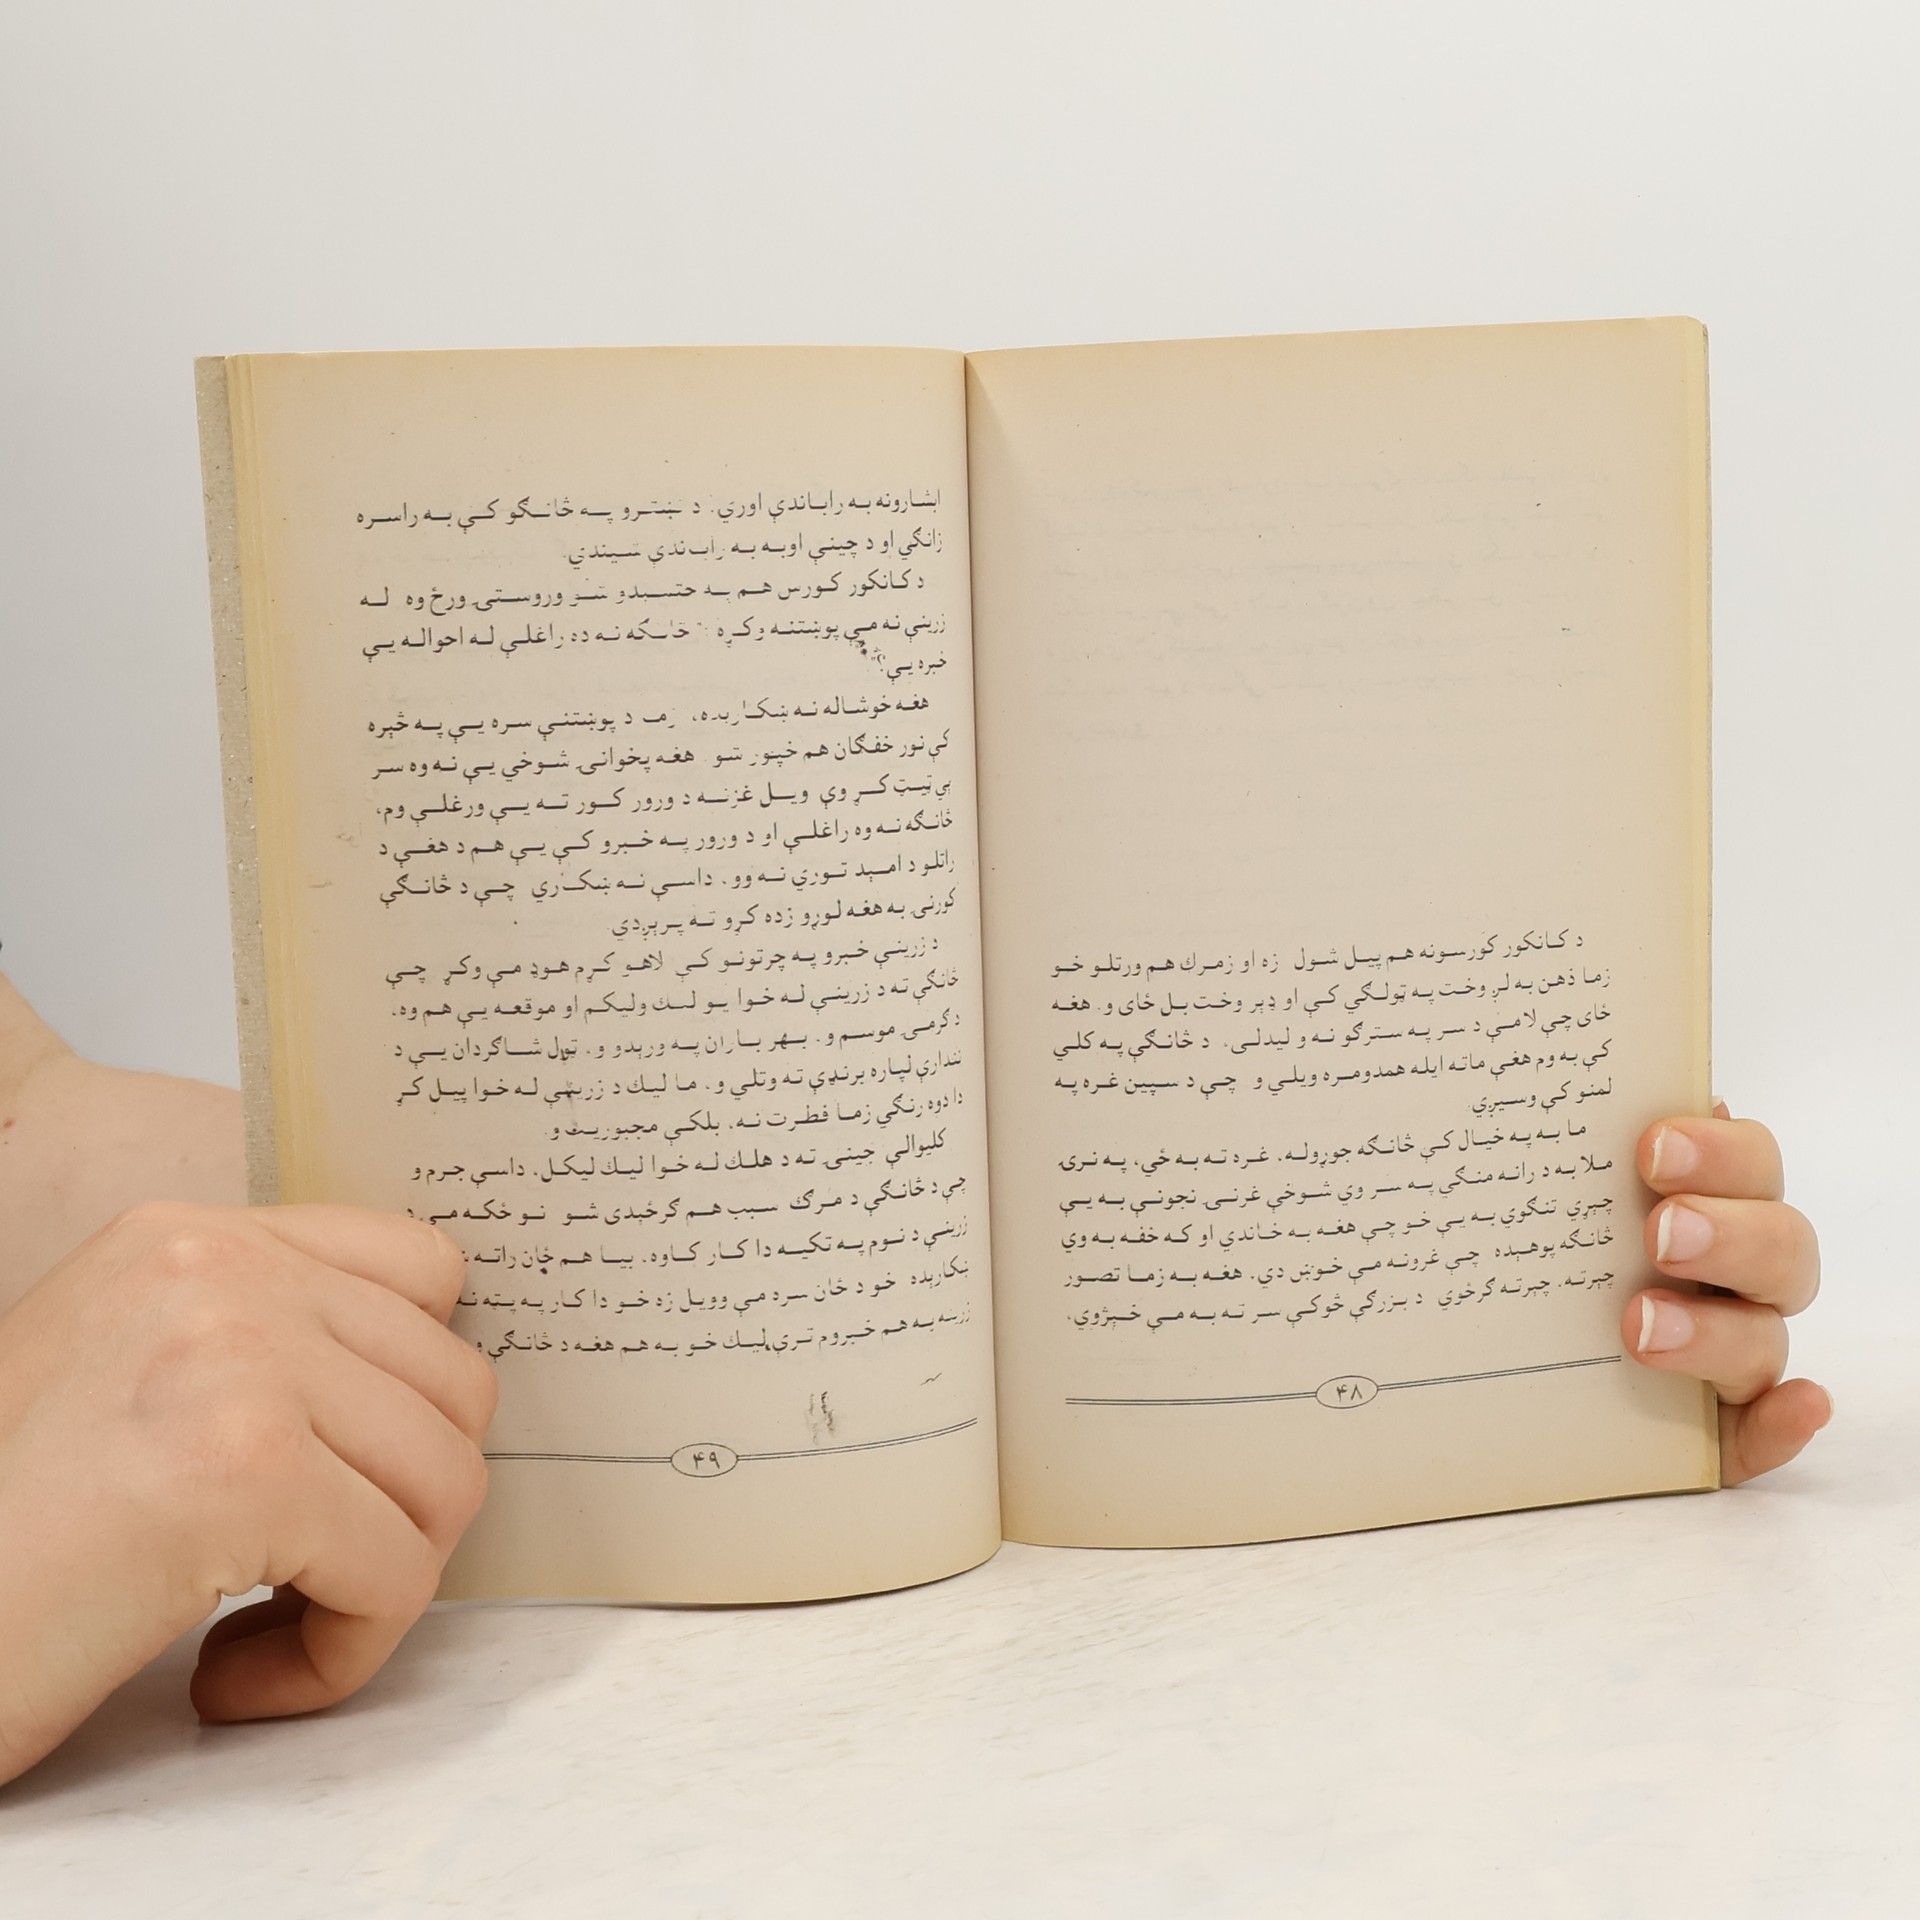 د کانکور کورسونه هم پیل شول زه او زمرك هم ورتلو خو
زما ذهن به لږ وخت په ټولګي کې او ډېر وخت بل ځای و. هغه
ځای چې لا مې د سر په سترګو نه و لیدلی، د څانګې په کلي
کې به وم هغې ماته ایله همدومره ویلي و چې د سپین غره په
لمنو کې وسیږي.
ما به په خیال کې څانګه جوړوله، غره ته به ځي، په نرۍ
ملا به د رانه منګي په سر وي شوخې غرنۍ نجونې به یې
چېړي تنګوي به یې خو چې هغه به خاندي او که خفه به وي
څانګه پوهېده چې غرونه مې خوښ دي. هغه به زما تصور
چېرته، چېرته ګرځوي د بزرګې څوکې سر ته به مې خېژوي،
۴۸
ابشارونه به راباندې اوري. د نښترو په څانګو کې به راسره
زانګي او د چینې اوبه به راباندې شیندي.
د کانکور کورس هم په ختمېدو شو وروستۍ ورځ وه له
زرینې نه مې پوښتنه وکړه: "څانګه نه ده راغلې له احواله یې
خبره یې؟"
هغه خوشاله نه ښکارېده، زما د پوښتنې سره یې په څېره
کې نور خفګان هم خپور شو هغه پخوانۍ شوخي یې نه وه سر
یې ټیټ کړ وې ویل غزنه د ورور کور ته یې ورغلې وم،
څانګه نه وه راغلې او د ورور په خبرو کې یې هم د هغې د
راتلو د امېد توري نه وو. داسې نه ښکاري چې د څانګې
کورنۍ به هغه لوړو زده کړو ته پرېږدي.
د زرینې خبرو په چرتونو کې لاهو کړم هوډ مې وکړ چې
څانګې ته د زرینې له خوا یو لیك ولیکم او موقعه یې هم وه،
د ګرمۍ موسم و. بهر باران په ورېدو و، ټول شاګردان یې د
نندارې لپاره برنډې ته وتلي و، ما لیك د زرینې له خوا پیل کړ
دا دوه رنګي زما فطرت نه، بلکې مجبوریت و.
کلیوالې جینۍ ته د هلك له خوا لیك لیکل، داسې جرم و
چې د څانګې د مرګ سبب هم ګرځېدی شو نو ځکه مې د
زرینې د نوم په تکیه دا کار کاوه. بیا هم ځان راته
ښکارېده خو د ځان سره مې وویل زه خو دا کار په پټه نه
زرینه به هم خبروم ترې لیك خو به هم هغه د څانګې و
۴۹